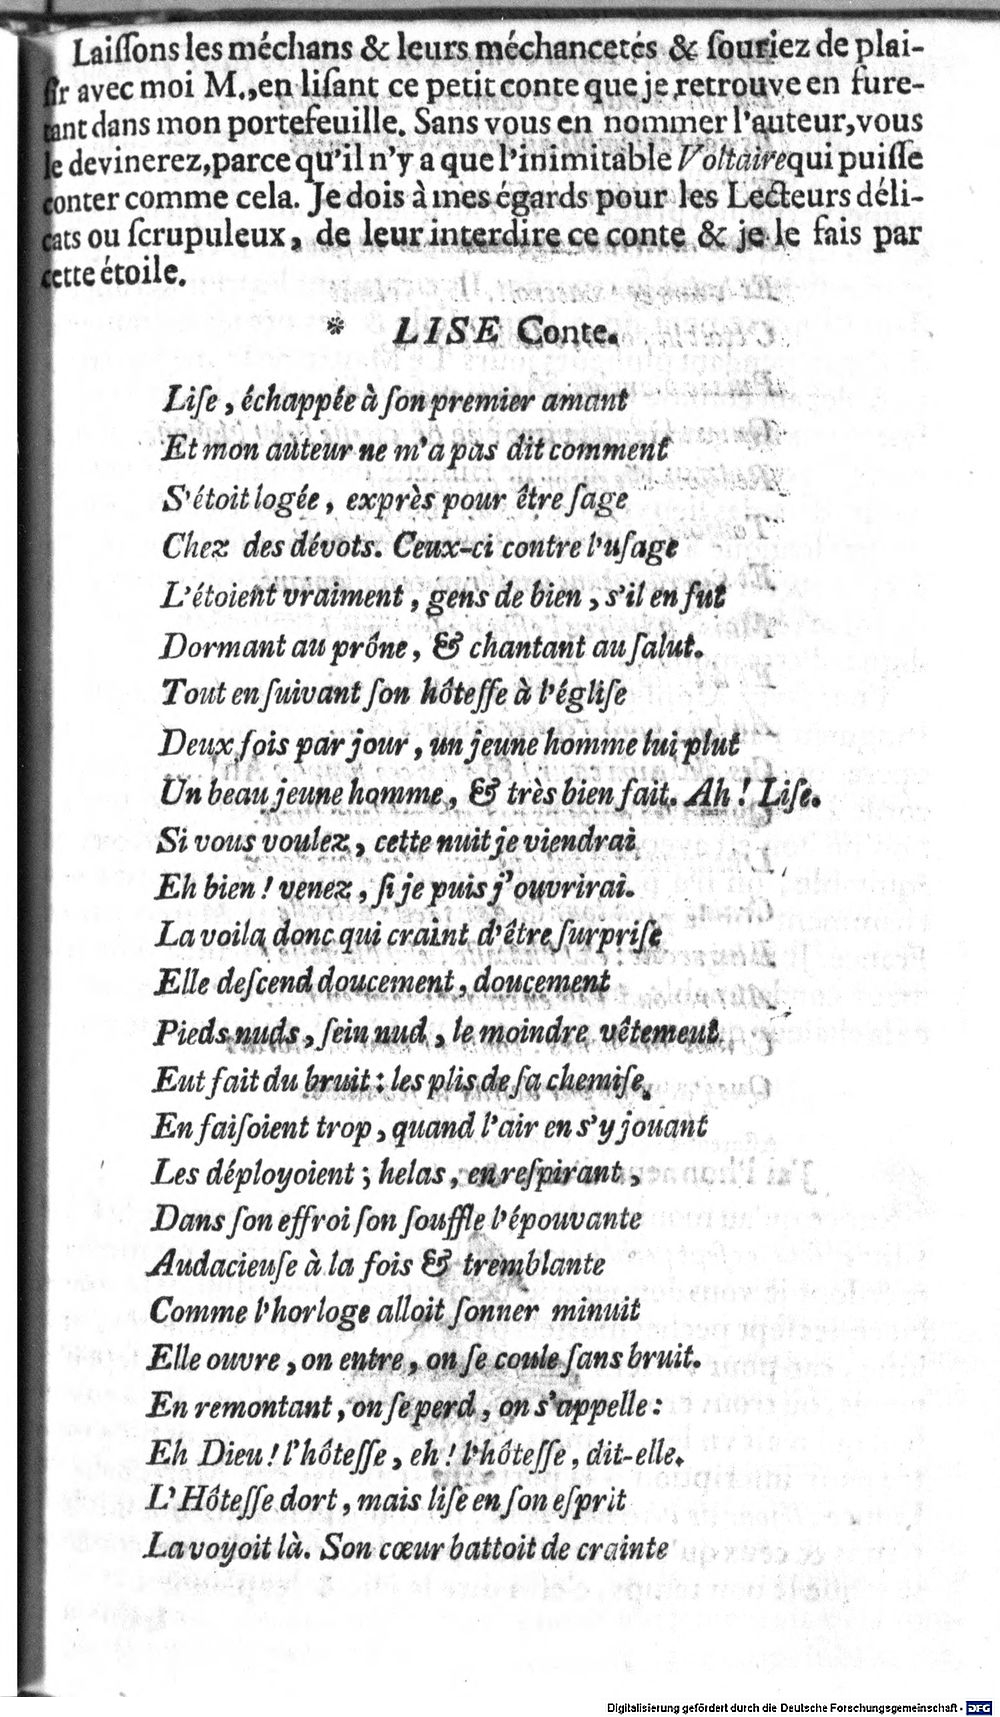 Laiſſons les méchans & leurs méchancetés & ſouriez de plai-
ſir avec moi M., en liſant ce petit conte que je retrouve en fure-
tant dans mon portefeuille. Sans vous en nommer l'auteur, vous
le devinerez, parce qu'il n'y a que l'inimitable Voltaire qui puiſſe
conter comme cela. Je dois à mes égards pour les Lecteurs déli-
cats ou ſcrupuleux, de leur interdire ce conte & je le fais par
cette étoile.
* LISE Conte.
Liſe, échappée à ſon premier amant
Et mon auteur ne m'a pas dit comment
S'étoit logée, exprès pour être ſage
Chez des dévots. Ceux-ci contre l'uſage
L'étoient vraiment, gens de bien, s'il en fut
Dormant au prône, & chantant au ſalut.
Tout en ſuivant ſon hôteſſe à l'égliſe
Deux fois par jour, un jeune homme lui plut
Un beau jeune homme, & très bien fait. Ah! Liſe.
Si vous voulez, cette nuit je viendrai
Eh bien! venez, ſi je puis j'ouvrirai.
La voila donc qui craint d'être ſurpriſe
Elle deſcend doucement, doucement
Pieds nuds, ſein nud, le moindre vêtement
Eut fait du bruit: les plis de ſa chemiſe.
En faiſoient trop, quand l'air en s'y jouant
Les déployoient; helas, en reſpirant,
Dans ſon effroi ſon ſouffle l'épouvante
Audacieuſe à la fois & tremblante
Comme l'horloge alloit ſonner minuit
Elle ouvre, on entre, on ſe coule ſans bruit.
En remontant, on ſe perd, on s'appelle:
Eh Dieu! l'hôteſſe, eh! l'hôteſſe, dit-elle.
L'Hôteſſe dort, mais liſe en ſon eſprit
La voyoit là. Son cœur battoit de crainte
Digitalisierung gefördert durch die Deutsche Forschungsgemeinschaft - DFG